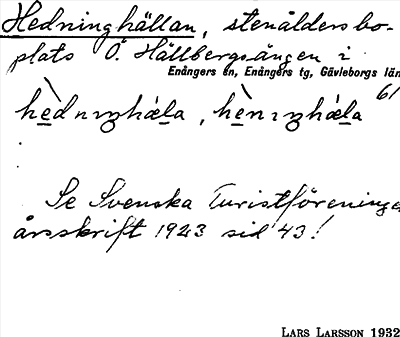 Hedninghällan, stenåldersbo-
plats Ö. Hällbergsängen i
Enångers sn, Enångers tg, Gävleborgs län
61
hèdnɪŋhǽla, hènɪŋhǽla
Se Svenska Turistföreningens
årsskrift 1923 sid 43!
LARS LARSSON 1932